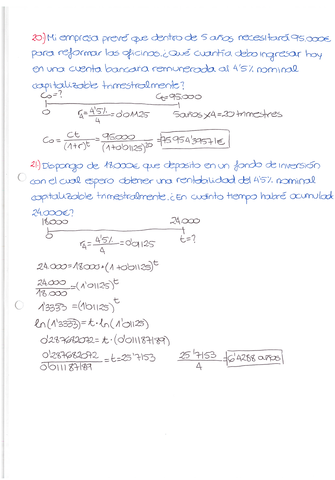 20) Mi empresa prevé que dentro de 5 años necesitará 95.000€
para reformar las oficinas. ¿Qué cuantía debo ingresar hoy
en una cuenta bancaria remunerada al 4'5% nominal
capitalizable trimestralmente?
C₀=? C₂₀=95.000
0 r₄=4'5%/4=0'01125 5años x4=20 trimestres
C₀= Ct/(1+r)^t = 95.000/(1+0'01125)^20 = 75.954,3757€
21) Dispongo de 18.000€ que deposito en un fondo de inversión
con el cual espero obtener una rentabilidad del 4'5% nominal
capitalizable trimestralmente. ¿En cuánto tiempo habré acumulad
24.000€?
18.000 24.000
0 r₄=4'5%/4=0'01125 t=?
24.000=18.000·(1+0'01125)^t
24.000/18.000=(1'01125)^t
1'3333=(1'01125)^t
ln(1'3333)=t·ln(1'01125)
0'287682072=t·(0'011187189)
0'287682072/0'011187189=t=25'7153 25'7153/4=6'4288 años